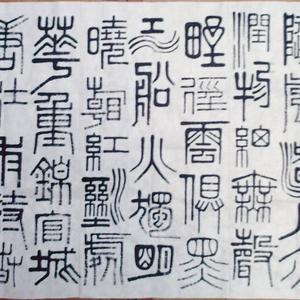 隨風潛入夜
潤物細無聲
野徑雲俱黑
江船火獨明
曉看紅溼處
華重錦官城
唐杜甫詩